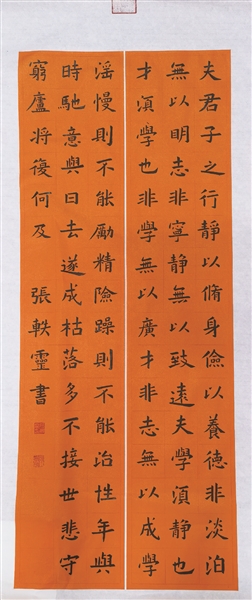 夫君子之行靜以脩身儉以養德非淡泊
無以明志非寧靜無以致遠夫學湏靜也
才湏學也非學無以廣才非志無以成學
滛慢則不能勵精險躁則不能治性年與
時馳意與日去遂成枯落多不接世悲守
窮廬將復何及 張軼靈書